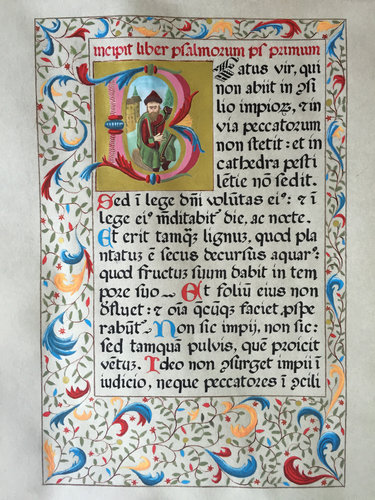 incipit liber psalmorum ps primum
BEatus vir, qui
non abiit in ꝯsi
lio impioꝝ, ⁊ in
via peccatorum
non stetit: et in
cathedra pesti
lētie nō sedit.
Sed ī lege dnī volūtas eiꝰ: ⁊ ī
lege eiꝰ mditabit' die, ac nocte.
Et erit tamqꝫ lignuꝫ, quod pla
ntatuꝫ ē secus decursus aquarꝰ:
quod fructus suum dabit in tem
pore suo Et foliū eius non
ꝯfluet: ⁊ oīa qcūqꝫ faciet, ꝓspe
rabūt' Non sic impij, non sic:
sed tamquā pulvis, quē proicit
vētuꝫ. Ideo non ꝯsurget impii ī
iudicio, neque peccatores ī ꝯcili